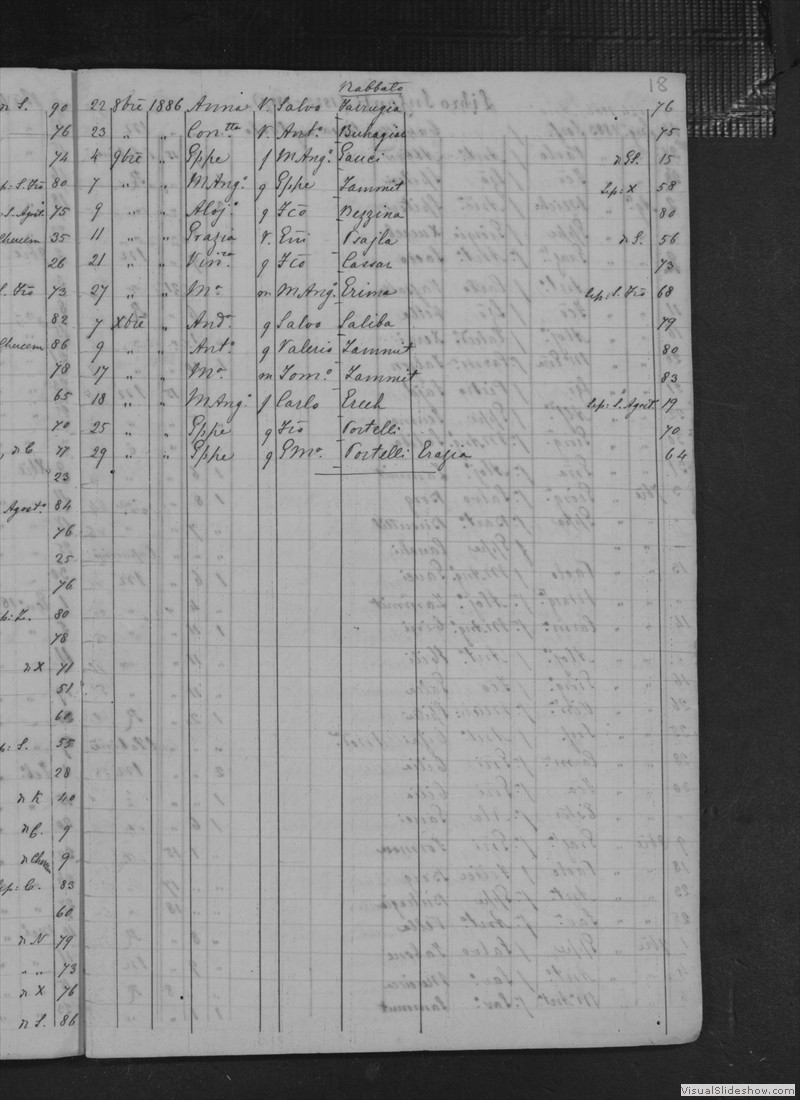 Rabbato 18
n S. 90
22 8bre 1886 Anna V. Salvo Farrugia 76
76
23 " " Con.tta V. Ant.o Buhagiar 75
74
4 9bre " Gppe f M Ang.o Gauci n Gs. 15
p: S. Fco 80
7 " " M Ang.a g Gppe Zammit Sep: X 58
S. Agost. 75
9 " " Aloj.a g Fco Bezzina 80
Chercem 35
11 " " Grazia V. Emi Vsajla n S. 56
26
21 " " Vin.za g Fco Cassar 73
S. Fco 73
27 " " M.a m M Ang.o Grima Sep: S. Fco 68
82
7 Xbre " And.a g Salvo Saliba 79
Chercem 86
9 " " Ant.o g Valerio Zammit 80
78
17 " " M.a m Tom.o Zammit 83
65
18 " " M Ang.o f Carlo Erceh Sep: S. Agost. 19
70
25 " " Gppe g Fco Portelli 70
, n C 77
29 " " Gppe g GMa Portelli Erazia 64
23
Agost.o 84
76
25
76
p: Z. 80
78
n X 71
51
60
p: S. 55
28
n K 40
n C. 9
n Chercem 9
Sep: C. 83
60
n N 79
" " 73
n X 76
n S. 86
VisualSlideshow.com